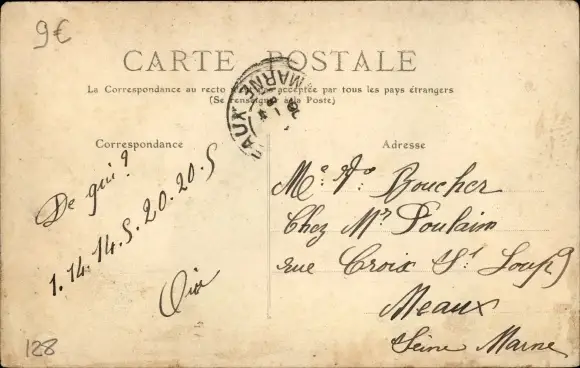 9€
CARTE POSTALE
La Correspondance au recto acceptée par tous les pays étrangers
(Se renseigner à la Poste)
MARNE
Correspondance
Adresse
De qui?
1.14.14.5.20.20.5
Boucher
Chez Mr Poulain
rue Croix St Loup 9
Meaux
Seine Marne
128